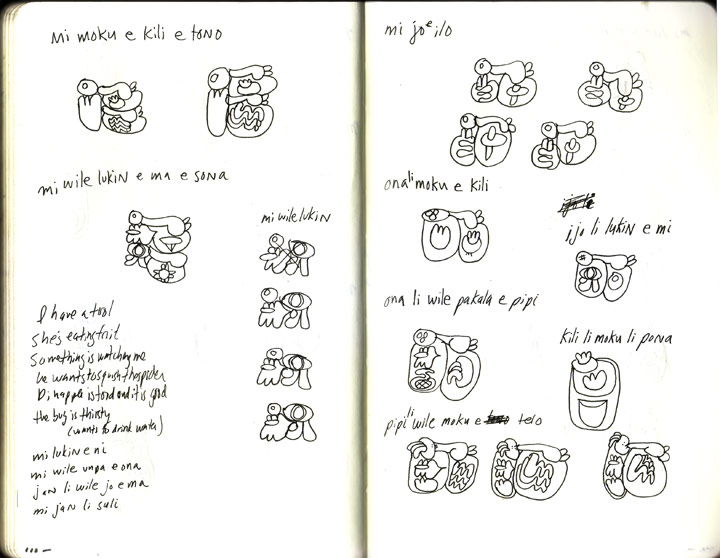 mi moku e kili e tono
mi wile lukin e ma e sona
mi wile lukin
I have a tool
She's eating fruit
Something is watching me
he wants to squash the spider
is food and it is good
the bug is thirsty
(wants to drink water)
mi lukin e ni
mi wile unpa e ona
jan li wile jo e ma
mi jan li suli
mi jo e ilo
ona li moku e kili
jjo li lukin e mi
ona li wile pakala e pipi
kili li moku li pona
pipi li wile moku e telo